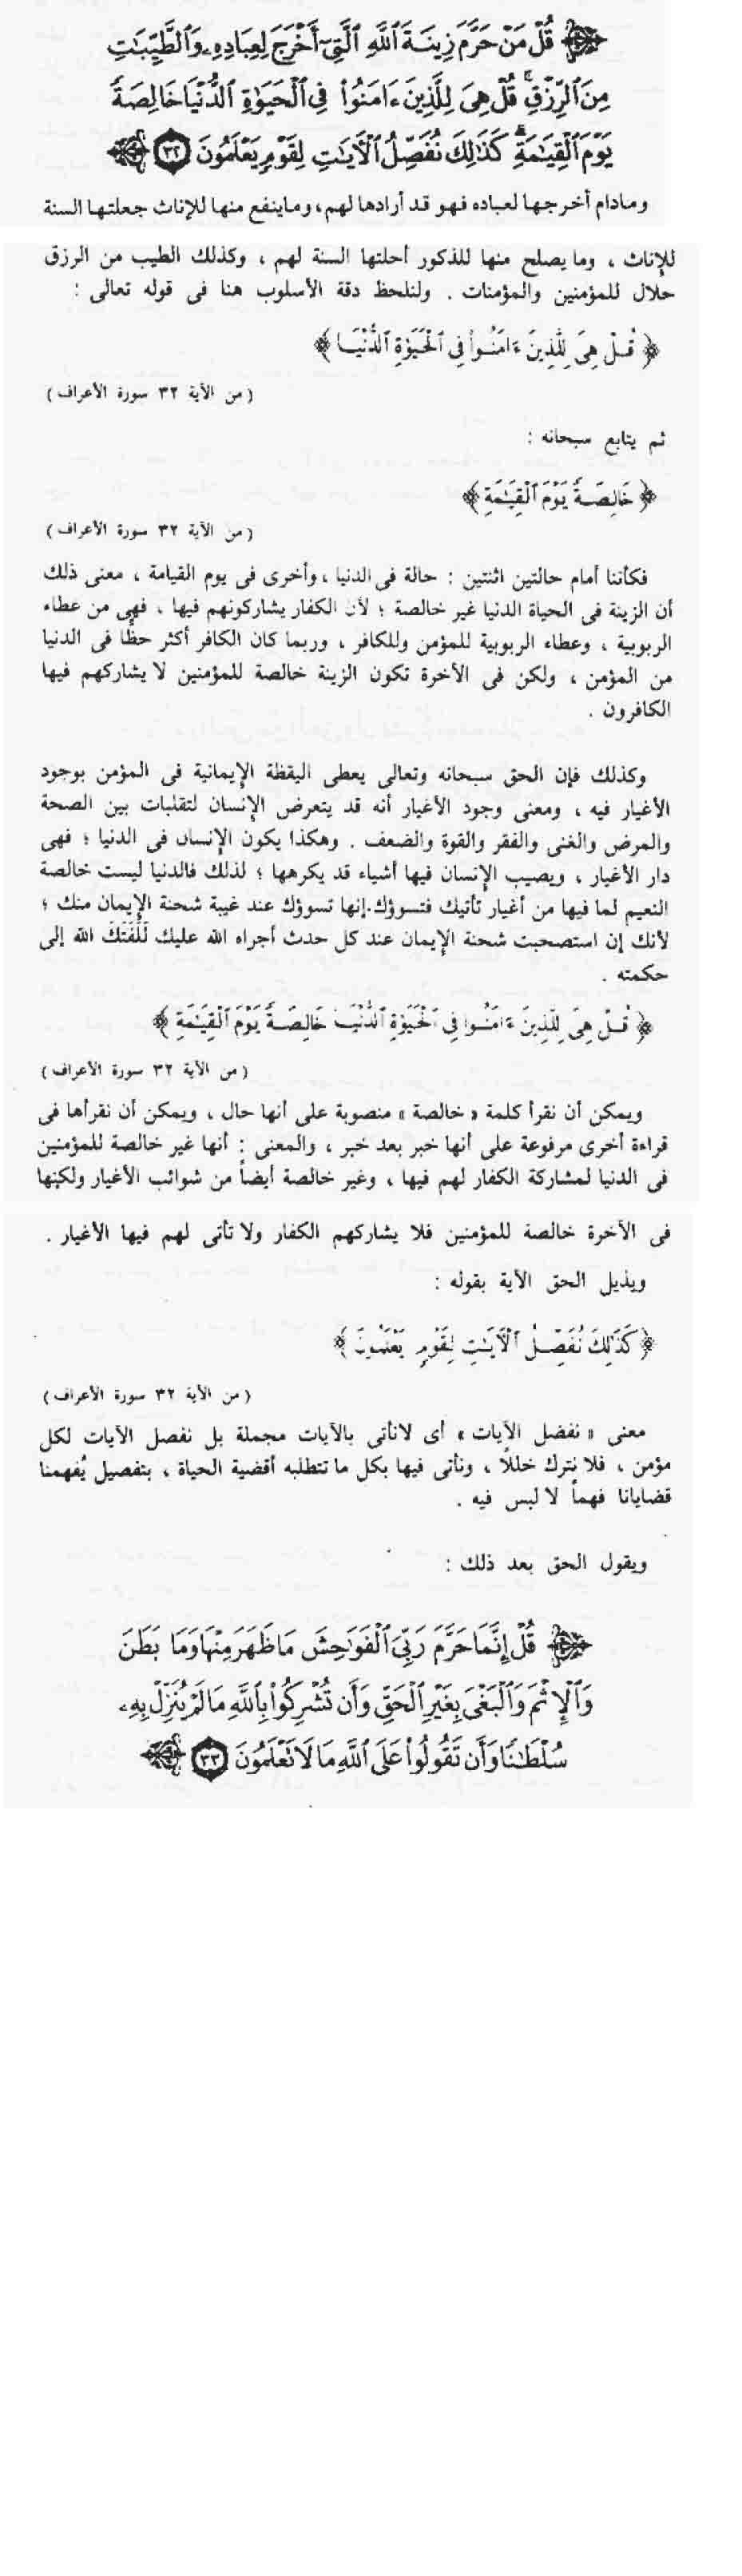 قُلْ مَنْ حَرَّمَ زِينَةَ ٱللَّهِ ٱلَّتِىٓ أَخْرَجَ لِعِبَادِهِۦ وَٱلطَّيِّبَٰتِ
مِنَ ٱلرِّزْقِ ۚ قُلْ هِىَ لِلَّذِينَ ءَامَنُوا۟ فِى ٱلْحَيَوٰةِ ٱلدُّنْيَا خَالِصَةً
يَوْمَ ٱلْقِيَٰمَةِ ۗ كَذَٰلِكَ نُفَصِّلُ ٱلْءَايَٰتِ لِقَوْمٍ يَعْلَمُونَ ٣٢
ومادام أخرجها لعباده فهو قد أرادها لهم، وماينفع منها للإناث جعلتها السنة
للإناث ، وما يصلح منها للذكور أحلتها السنة لهم ، وكذلك الطيب من الرزق
حلال للمؤمنين والمؤمنات . ولنلحظ دقة الأسلوب هنا فى قوله تعالى :
﴿ قُلْ هِىَ لِلَّذِينَ ءَامَنُوا۟ فِى ٱلْحَيَوٰةِ ٱلدُّنْيَا ﴾
( من الآية ٣٢ سورة الأعراف )
ثم يتابع سبحانه :
﴿ خَالِصَةً يَوْمَ ٱلْقِيَٰمَةِ ﴾
( من الآية ٣٢ سورة الأعراف )
فكأننا أمام حالتين اثنتين : حالة فى الدنيا ، وأخرى فى يوم القيامة ، معنى ذلك
أن الزينة فى الحياة الدنيا غير خالصة ؛ لأن الكفار يشاركونهم فيها ، فهى من عطاء
الربوبية ، وعطاء الربوبية للمؤمن وللكافر ، وربما كان الكافر أكثر حظًّا فى الدنيا
من المؤمن ، ولكن فى الآخرة تكون الزينة خالصة للمؤمنين لا يشاركهم فيها
الكافرون .
وكذلك فإن الحق سبحانه وتعالى يعطى اليقظة الإيمانية فى المؤمن بوجود
الأغيار فيه ، ومعنى وجود الأغيار أنه قد يتعرض الإنسان لتقلبات بين الصحة
والمرض والغنى والفقر والقوة والضعف . وهكذا يكون الإنسان فى الدنيا ؛ فهى
دار الأغيار ، ويصيب الإنسان فيها أشياء قد يكرهها ؛ لذلك فالدنيا ليست خالصة
النعيم لما فيها من أغيار تأتيك فتسوؤك. إنها تسوؤك عند غيبة شحنة الإيمان منك ؛
لأنك إن استصحبت شحنة الإيمان عند كل حدث أجراه الله عليك لَلَفَتَكَ الله إلى
حكمته .
﴿ قُلْ هِىَ لِلَّذِينَ ءَامَنُوا۟ فِى ٱلْحَيَوٰةِ ٱلدُّنْيَا خَالِصَةً يَوْمَ ٱلْقِيَٰمَةِ ﴾
( من الآية ٣٢ سورة الأعراف )
ويمكن أن نقرأ كلمة « خالصة » منصوبة على أنها حال ، ويمكن أن نقرأها فى
قراءة أخرى مرفوعة على أنها خبر بعد خبر ، والمعنى : أنها غير خالصة للمؤمنين
فى الدنيا لمشاركة الكفار لهم فيها ، وغير خالصة أيضاً من شوائب الأغيار ولكنها
فى الآخرة خالصة للمؤمنين فلا يشاركهم الكفار ولا تأتى لهم فيها الأغيار .
ويذيل الحق الآية بقوله :
﴿ كَذَٰلِكَ نُفَصِّلُ ٱلْءَايَٰتِ لِقَوْمٍ يَعْلَمُونَ ﴾
( من الآية ٣٢ سورة الأعراف )
معنى « نفضل الآيات » أى لانأتى بالآيات مجملة بل نفصل الآيات لكل
مؤمن ، فلا نترك خللاً ، ونأتى فيها بكل ما تتطلبه أقضية الحياة ، بتفصيل يُفهمنا
قضايانا فهماً لا لبس فيه .
ويقول الحق بعد ذلك :
قُلْ إِنَّمَا حَرَّمَ رَبِّىَ ٱلْفَوَٰحِشَ مَا ظَهَرَ مِنْهَا وَمَا بَطَنَ
وَٱلْإِثْمَ وَٱلْبَغْىَ بِغَيْرِ ٱلْحَقِّ وَأَن تُشْرِكُوا۟ بِٱللَّهِ مَا لَمْ يُنَزِّلْ بِهِۦ
سُلْطَٰنًا وَأَن تَقُولُوا۟ عَلَى ٱللَّهِ مَا لَا تَعْلَمُونَ ٣٣